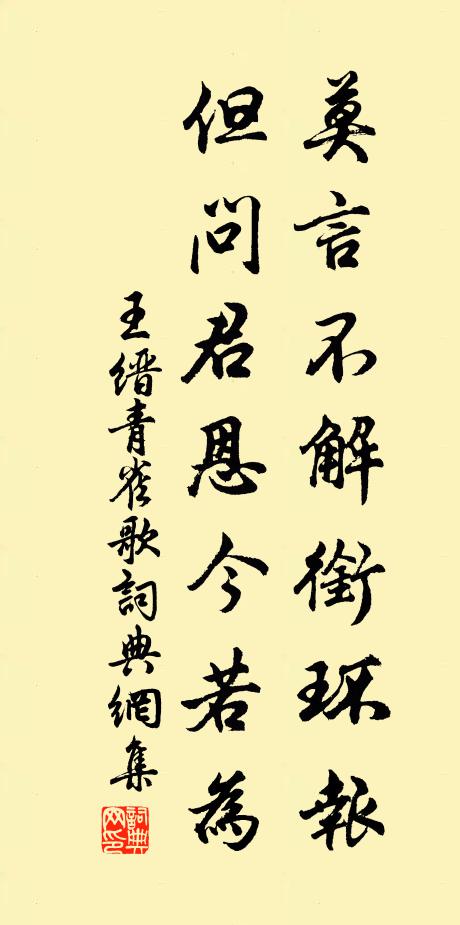 莫言不解銜环報
但問君恩今若為
王縉青雀歌詞典網集
詞典网印